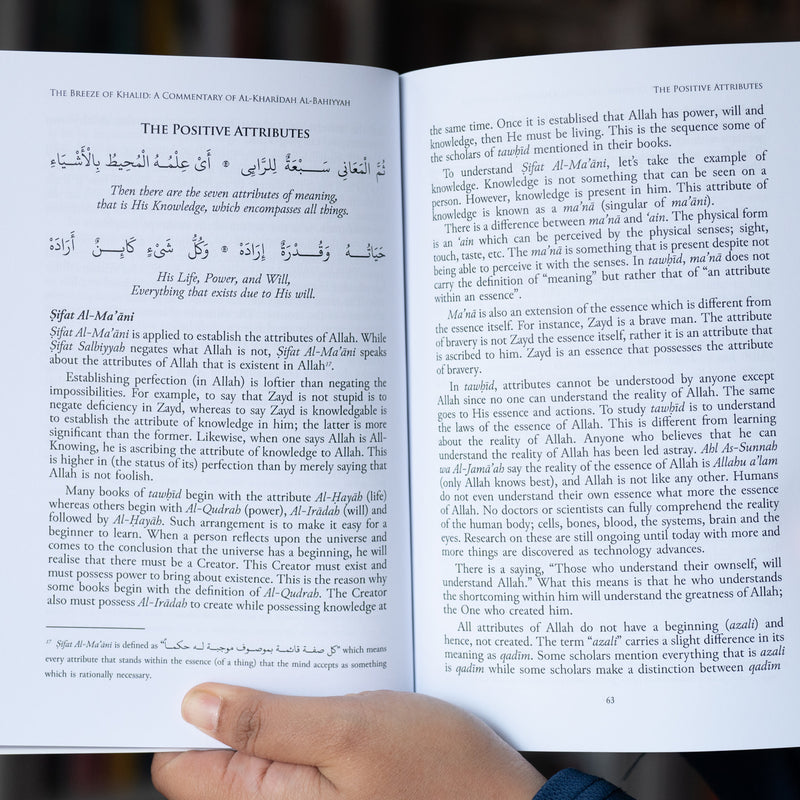 THE BREEZE OF KHALID: A COMMENTARY OF AL-KHARĪDAH AL-BAHIYYAH
THE POSITIVE ATTRIBUTES
ثُمَّ الْمَعَانِي سَبْعَةٌ لِلرَّائِي ۞ أَيْ عِلْمُهُ الْمُحِيطُ بِالْأَشْيَاءِ
Then there are the seven attributes of meaning,
that is His Knowledge, which encompasses all things.
حَيَاتُهُ وَقُدْرَةٌ إِرَادَهْ ۞ وَكُلُّ شَيْءٍ كَائِنٌ أَرَادَهْ
His Life, Power, and Will,
Everything that exists due to His will.
Ṣifat Al-Ma’āni
Ṣifat Al-Ma’āni is applied to establish the attributes of Allah. While
Ṣifat Salbiyyah negates what Allah is not, Ṣifat Al-Ma’āni speaks
about the attributes of Allah that is existent in Allah²⁷.
Establishing perfection (in Allah) is loftier than negating the
impossibilities. For example, to say that Zayd is not stupid is to
negate deficiency in Zayd, whereas to say Zayd is knowledgable is
to establish the attribute of knowledge in him; the latter is more
significant than the former. Likewise, when one says Allah is All-
Knowing, he is ascribing the attribute of knowledge to Allah. This
is higher in (the status of its) perfection than by merely saying that
Allah is not foolish.
Many books of tawḥīd begin with the attribute Al-Ḥayāh (life)
whereas others begin with Al-Qudrah (power), Al-Irādah (will) and
followed by Al-Ḥayāh. Such arrangement is to make it easy for a
beginner to learn. When a person reflects upon the universe and
comes to the conclusion that the universe has a beginning, he will
realise that there must be a Creator. This Creator must exist and
must possess power to bring about existence. This is the reason why
some books begin with the definition of Al-Qudrah. The Creator
also must possess Al-Irādah to create while possessing knowledge at
²⁷ Ṣifat Al-Ma’āni is defined as “كل صفة قائمة بموصوف موجبة له حكما” which means
every attribute that stands within the essence (of a thing) that the mind accepts as something
which is rationally necessary.
THE POSITIVE ATTRIBUTES
the same time. Once it is establised that Allah has power, will and
knowledge, then He must be living. This is the sequence some of
the scholars of tawḥīd mentioned in their books.
To understand Ṣifat Al-Ma’āni, let’s take the example of
knowledge. Knowledge is not something that can be seen on a
person. However, knowledge is present in him. This attribute of
knowledge is known as a ma’nā (singular of ma’āni).
There is a difference between ma’nā and ‘ain. The physical form
is an ‘ain which can be perceived by the physical senses; sight,
touch, taste, etc. The ma’nā is something that is present despite not
being able to perceive it with the senses. In tawḥīd, ma’nā does not
carry the definition of “meaning” but rather that of “an attribute
within an essence”.
Ma’nā is also an extension of the essence which is different from
the essence itself. For instance, Zayd is a brave man. The attribute
of bravery is not Zayd the essence itself, rather it is an attribute that
is ascribed to him. Zayd is an essence that possesses the attribute
of bravery.
In tawḥīd, attributes cannot be understood by anyone except
Allah since no one can understand the reality of Allah. The same
goes to His essence and actions. To study tawḥīd is to understand
the laws of the essence of Allah. This is different from learning
about the reality of Allah. Anyone who believes that he can
understand the reality of Allah has been led astray. Ahl As-Sunnah
wa Al-Jamā’ah say the reality of the essence of Allah is Allahu a’lam
(only Allah knows best), and Allah is not like any other. Humans
do not even understand their own essence what more the essence
of Allah. No doctors or scientists can fully comprehend the reality
of the human body; cells, bones, blood, the systems, brain and the
eyes. Research on these are still ongoing until today with more and
more things are discovered as technology advances.
There is a saying, “Those who understand their ownself, will
understand Allah.” What this means is that he who understands
the shortcoming within him will understand the greatness of Allah;
the One who created him.
All attributes of Allah do not have a beginning (azali) and
hence, not created. The term “azali” carries a slight difference in its
meaning as qadīm. Some scholars mention everything that is azali
is qadīm while some scholars make a distinction between qadīm
63